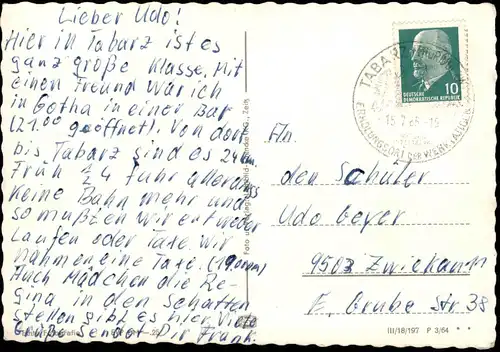 Lieber Udo!
Hier in Tabarz ist es
ganz große Klasse. Mit
einen Freund war ich
in Gotha in einer Bar
(21.00 geöffnet). Von dort
bis Tabarz sind es 24 km.
Früh 1/4 fuhr allerdings
keine Bahn mehr und
so mußten wir entweder
Laufen oder Taxe. Wir
nahmen eine Taxe. (19,00 m)
Auch Mädchen die Re-
gina in den Schatten
stellen gibt es hier. Viele
Grüße sendet Dir Frank.
An
den Schüler
Udo Geyer
9503 Zwickau 11
E. Grube Str 38
DEUTSCHE
DEMOKRATISCHE REPUBLIK
10
TABARZ
15.7.65-15
ERHOLUNGSORT DER WERKTÄTIGEN
III/18/197 P 3/64